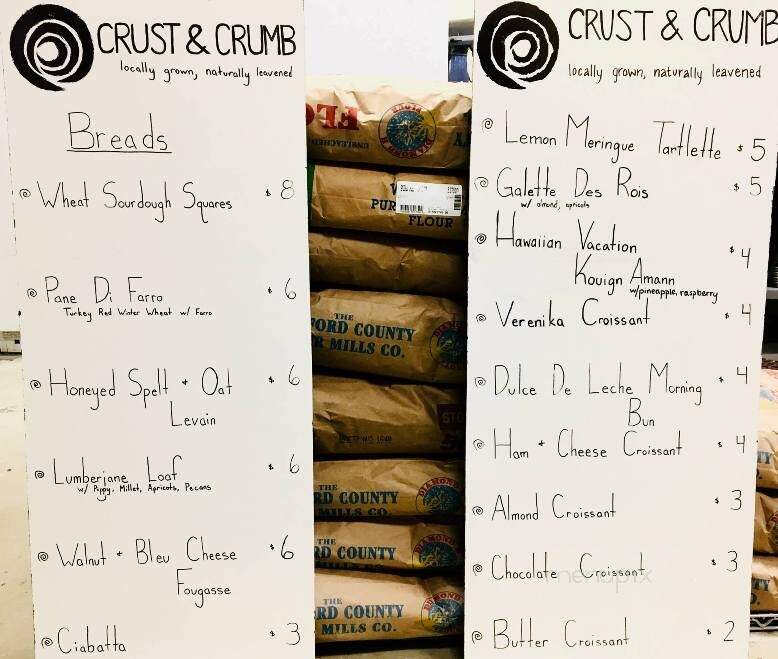 CRUST & CRUMB
locally grown, naturally leavened
Breads
Wheat Sourdough Squares $ 8
Pane Di Farro $ 6
Turkey Red Winter Wheat w/ Farro
Honeyed Spelt + Oat $ 6
Levain
Lumberjane Loaf $ 6
w/ Poppy, Millet, Apricots, Pecans
Walnut + Bleu Cheese $ 6
Fougasse
Ciabatta $ 3
UNBLEACHED
PUR
FLOUR
THE
FORD COUNTY
R MILLS CO.
THE
RD COUNTY
MILLS CO.
THE
RD COUNTY
THE
RD COUNTY
MILLS CO.
DIAMOND
CRUST & CRUMB
locally grown, naturally leavened
Lemon Meringue Tartlette $ 5
Galette Des Rois $ 5
w/ almond, apricots
Hawaiian Vacation $ 4
Kouign Amann
w/pineapple, raspberry
Verenika Croissant $ 4
Dulce De Leche Morning $ 4
Bun
Ham + Cheese Croissant $ 4
Almond Croissant $ 3
Chocolate Croissant $ 3
menupix
Butter Croissant $ 2